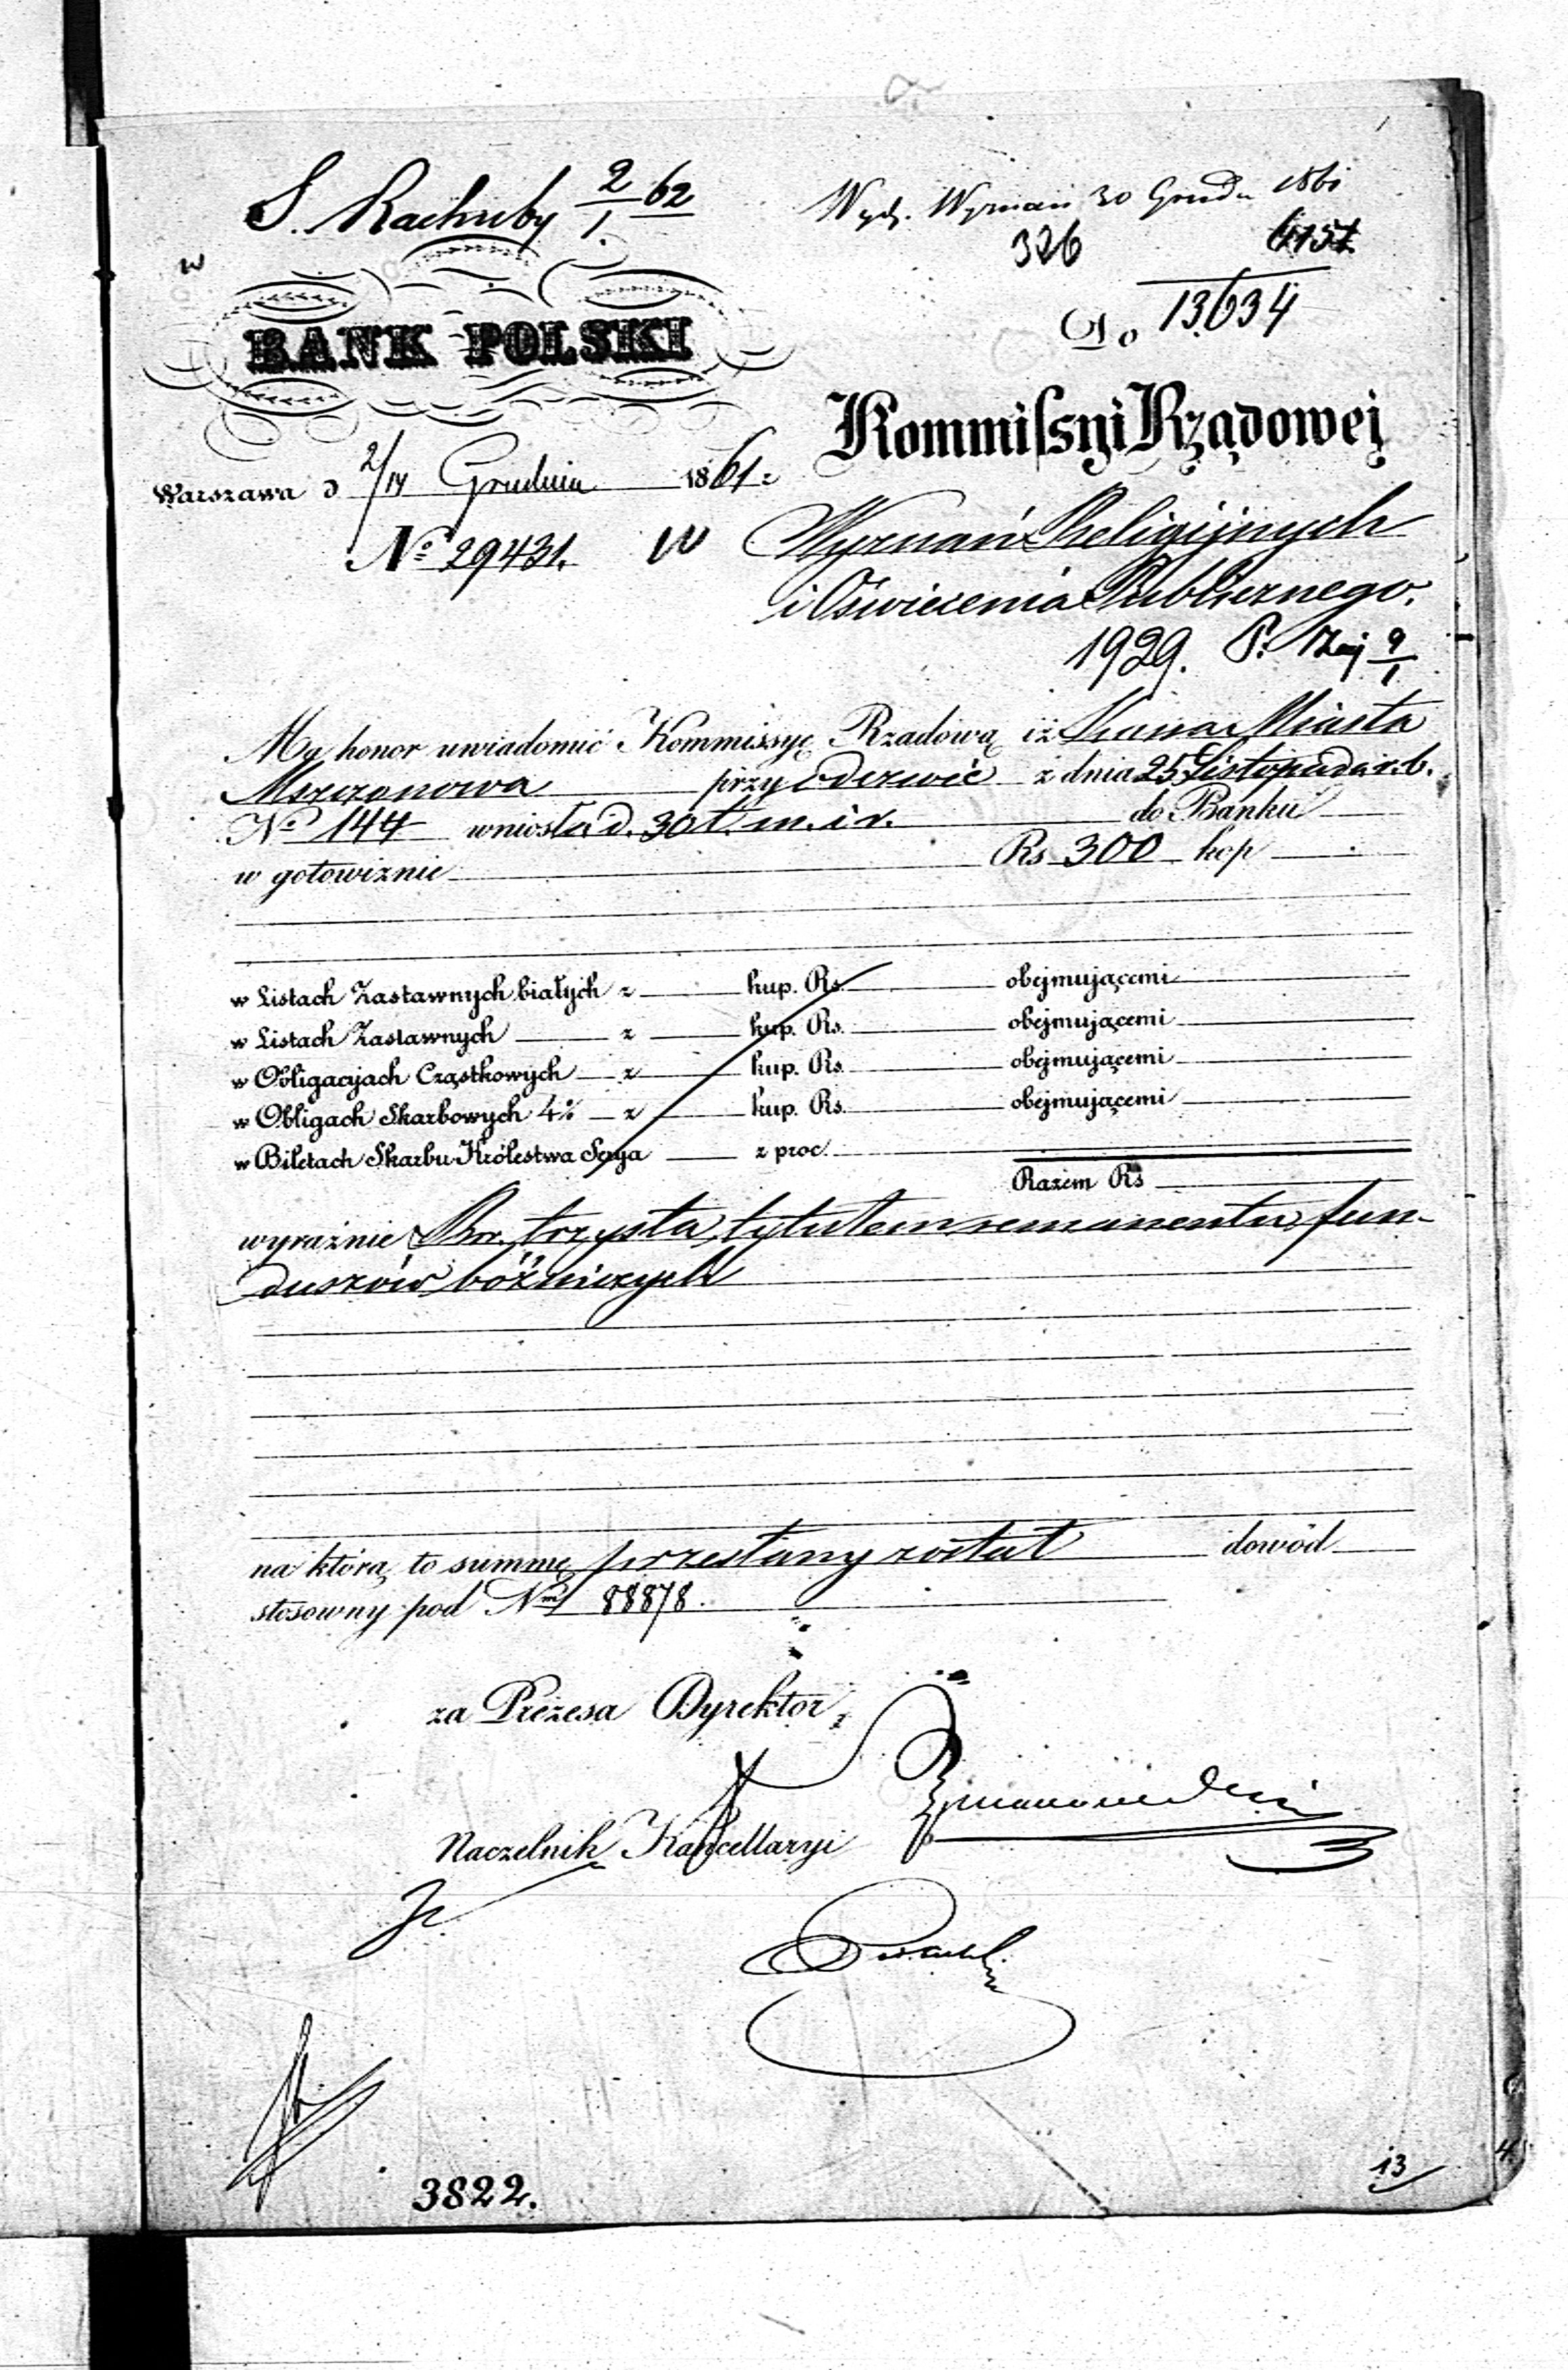 S. Rachuby 2/1. 62
Wyz. Wyznań 30 Grud. 1861
326
13634
Do
BANK POLSKI
Kommissyi Rządowej
Warszawa d 2/14 Grudnia 1861 r
No 29431. W
Wyznań Religijnych
i Oświecenia Publicznego.
1929. 9/1
Ma honor uwiadomić Kommissyę Rządową iż Kassa Miasta
Mszczonowa przy odezwie z dnia 25 Listopada r. b.
No 144 wniosła d. 30 t. m. i r. do Banku
w gotowiznie Rs 300 kop
w Listach Zastawnych białych z kup. Rs. obejmującemi
w Listach Zastawnych z kup. Rs. obejmującemi
w Obligacyach Cząstkowych z kup. Rs. obejmującemi
w Obligach Skarbowych 4% z kup. Rs. obejmującemi
w Biletach Skarbu Królestwa Serya z proc.
Razem Rs
wyraźnie Rsr. trzysta, tytułem remanentu fun-
duszów bóżniczych
na którą to summę przesłany został dowód
stosowny pod Nm 88878.
za Prezesa Dyrektor,
Naczelnik Kancellaryi
3822.
13